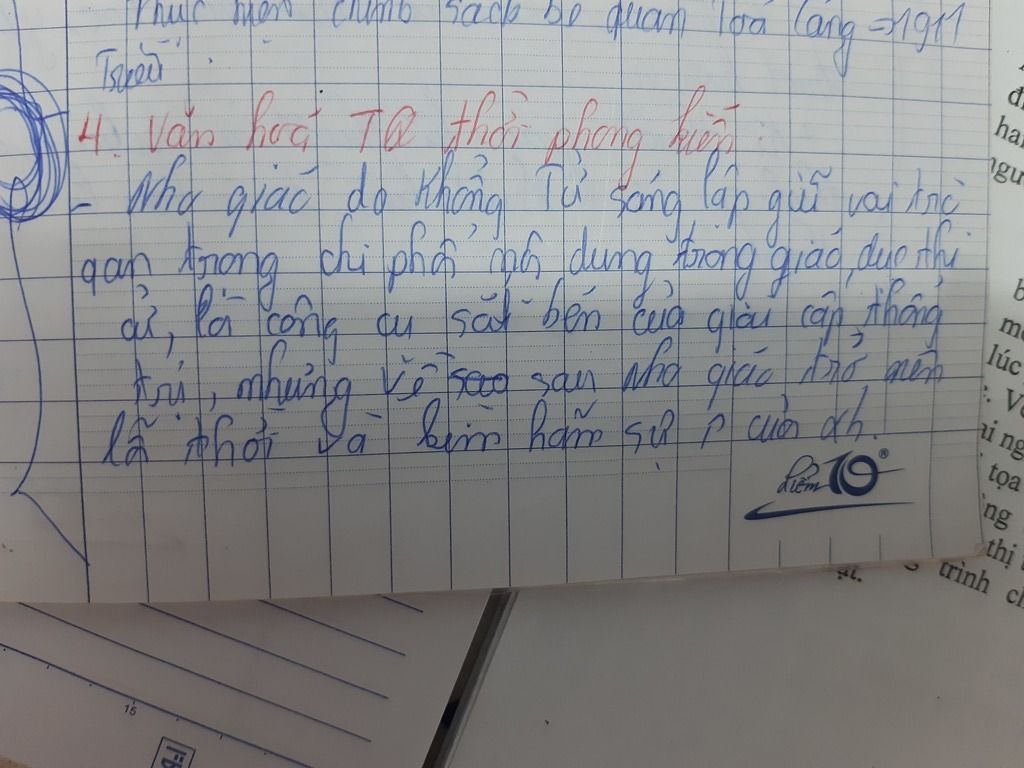 Thực hiện chính sách bế quan toả cảng => 1911
4. Văn hoá TQ thời phong kiến.
- Nho giáo do Khổng Tử sáng lập giữ vai trò
quan trọng chi phối nội dung trong giáo dục thi
cử, là công cụ sắc bén của giai cấp thống
trị, nhưng về sau Nho giáo trở nên
lỗi thời và kìm hãm sự p của xh.
điểm 10®
lúc
tọa
thị
trình
15